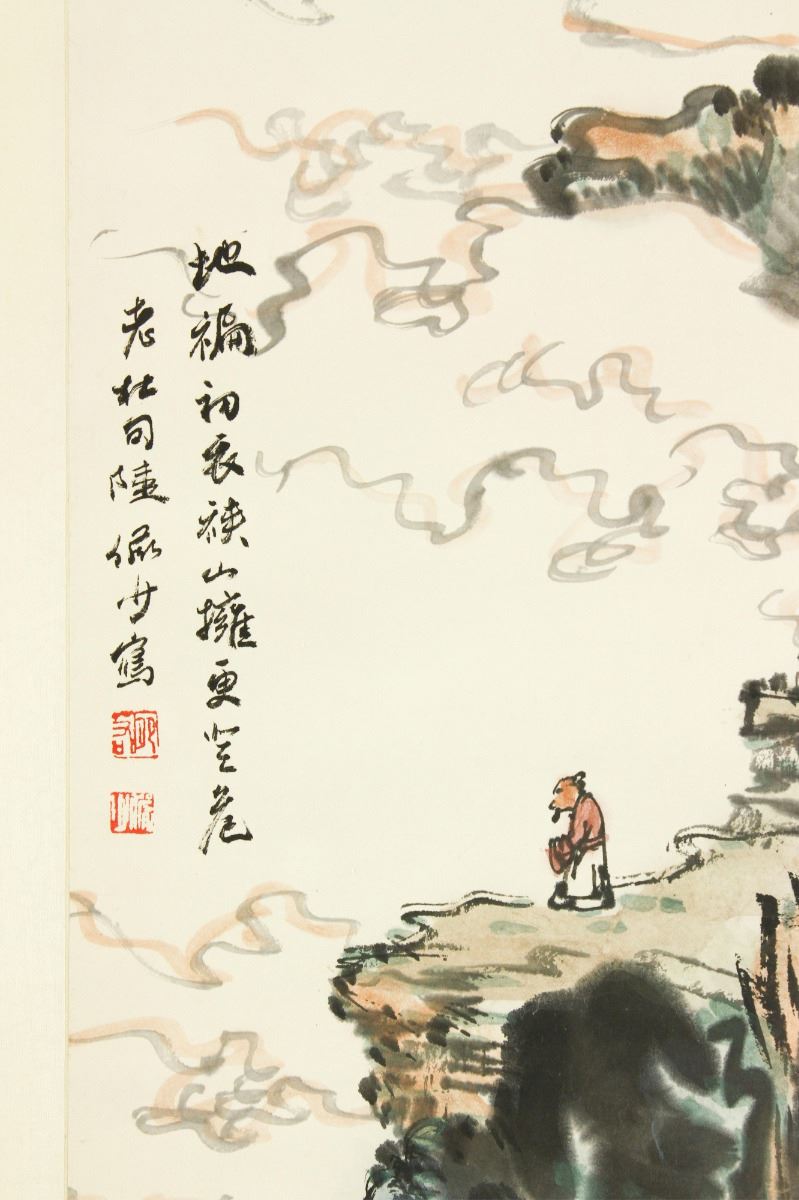 地褊初衣裌山擁更登危
老杜句陸儼少寫